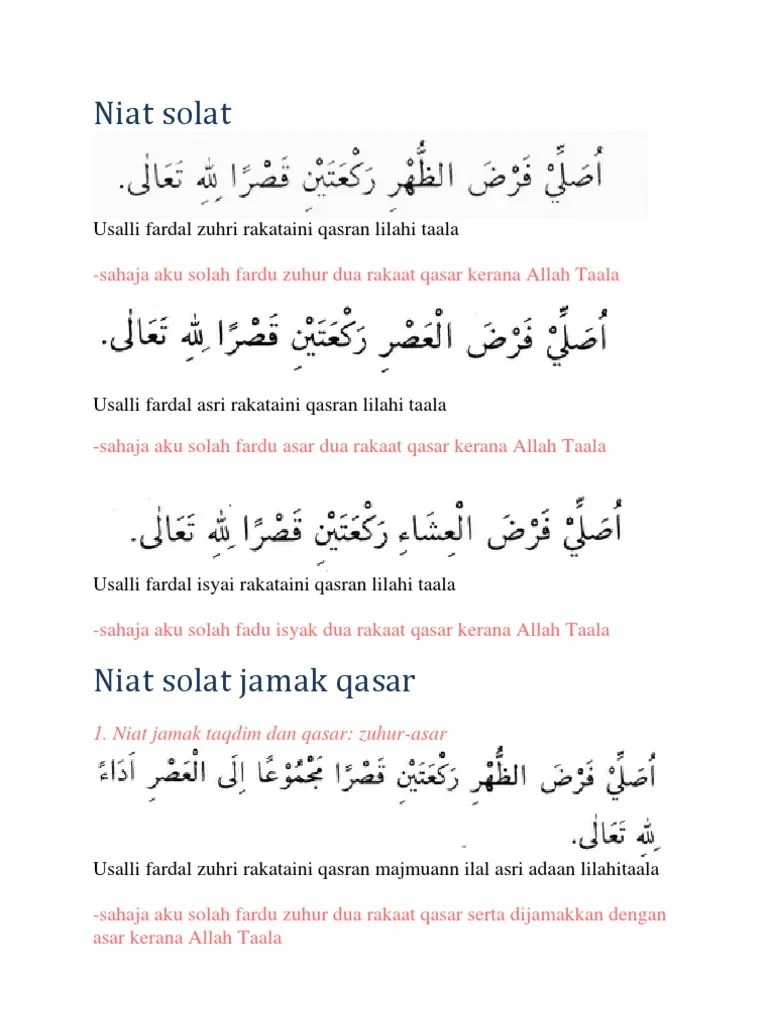 Niat solat
اُصَلِّيْ فَرْضَ الظُّهْرِ رَكْعَتَيْنِ قَصْرًا لِلهِ تَعَالٰى.
Usalli fardal zuhri rakataini qasran lilahi taala
-sahaja aku solah fardu zuhur dua rakaat qasar kerana Allah Taala
اُصَلِّيْ فَرْضَ الْعَصْرِ رَكْعَتَيْنِ قَصْرًا لِلهِ تَعَالٰى.
Usalli fardal asri rakataini qasran lilahi taala
-sahaja aku solah fardu asar dua rakaat qasar kerana Allah Taala
اُصَلِّيْ فَرْضَ الْعِشَاءِ رَكْعَتَيْنِ قَصْرًا لِلهِ تَعَالٰى.
Usalli fardal isyai rakataini qasran lilahi taala
-sahaja aku solah fadu isyak dua rakaat qasar kerana Allah Taala
Niat solat jamak qasar
1. Niat jamak taqdim dan qasar: zuhur-asar
اُصَلِّيْ فَرْضَ الظُّهْرِ رَكْعَتَيْنِ قَصْرًا مَجْمُوْعًا اِلَى الْعَصْرِ اَدَاءً
لِلهِ تَعَالٰى.
Usalli fardal zuhri rakataini qasran majmuann ilal asri adaan lilahitaala
-sahaja aku solah fardu zuhur dua rakaat qasar serta dijamakkan dengan
asar kerana Allah Taala